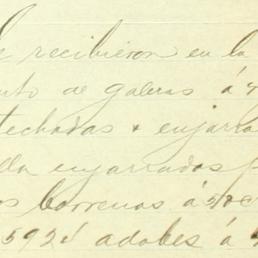 e recibieron en la
nto de galeras á 4
techadas & enjarra
lla enjarradas p
os barrenos á 50c
5924 adobes á